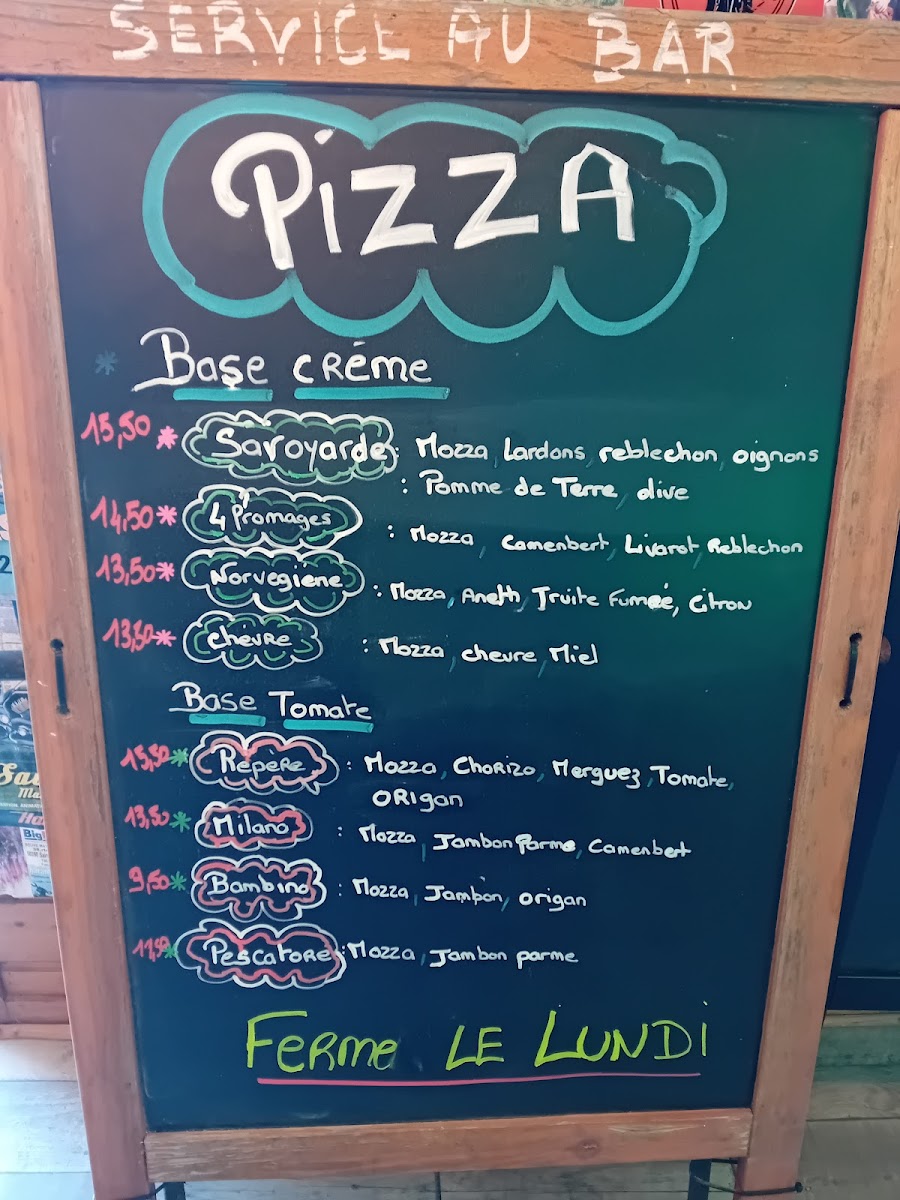 SERVICE AU BAR
PiZZA
* Base crème
15,50 * Savoyarde : Mozza, Lardons, reblechon, oignons
: Pomme de Terre, olive
14,50 * 4 Fromages : Mozza, Camenbert, Livarot, Reblechon
13,50 * Norvegiene : Mozza, Aneth, Truite Fumée, Citron
13,50 * chèvre : Mozza, chevre, Miel
Base Tomate
15,50 * Repere : Mozza, Chorizo, Merguez, Tomate,
ORigan
13,50 * Milano : Mozza, Jambon Parme, Camenbert
9,50 * Bambino : Mozza, Jambon, origan
* Pescatore : Mozza, Jambon parme
Ferme LE LUNDi